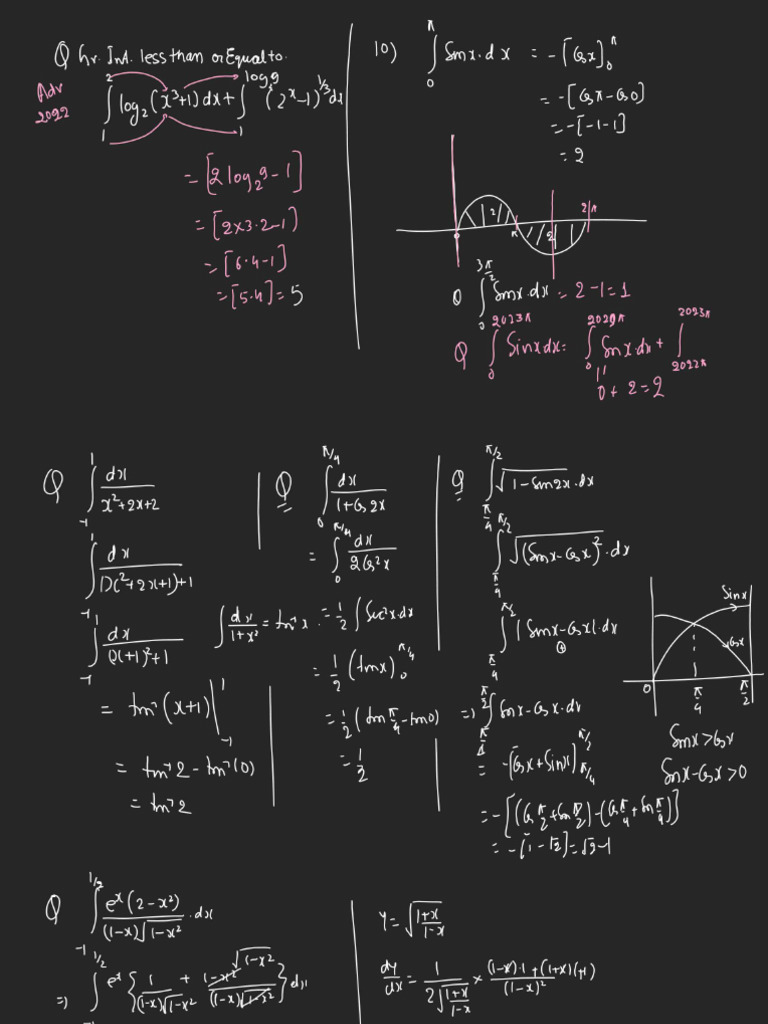 Q hr. Int. less than or Equal to.
Adv 2022
∫₁² log₂(x³+1) dx + ∫₁^{log 9} (2ˣ-1)^{1/3} dx
= [2 log₂9 - 1]
= [2×3·2-1]
= [6·4-1]
= [5·4] = 5
10) ∫₀^π Sinx·dx = -[Cosx]₀^π
= -[Cosπ-Cos0]
= -[-1-1]
= 2
2 π 2 2π
0
Q ∫₀^{3π/2} Sinx·dx = 2-1 = 1
Q ∫₀^{2023π} Sinxdx = ∫₀^{2022π} Sinx·dx + ∫_{2022π}^{2023π}
0 + 2 = 2
Q ∫₋₁¹ dx/(x²+2x+2)
∫₋₁¹ dx/((x²+2x+1)+1)
∫₋₁¹ dx/((x+1)²+1)
= tan⁻¹(x+1)|₋₁¹
= tan⁻¹2 - tan⁻¹(0)
= tan⁻¹2
∫ dx/(1+x²) = tan⁻¹x
Q ∫₀^{π/4} dx/(1+Cos2x)
= ∫₀^{π/4} dx/(2Cos²x)
= 1/2 ∫ Sec²x·dx
= 1/2 (tanx)₀^{π/4}
= 1/2 (tan π/4 - tan0)
= 1/2
Q ∫_{π/4}^{π/2} √(1-Sin2x)·dx
∫_{π/4}^{π/2} √((Sinx-Cosx)²)·dx
∫_{π/4}^{π/2} |Sinx-Cosx|·dx
⊕
⇒ ∫_{π/4}^{π/2} Sinx-Cosx·dx
= -(Cosx+Sinx)_{π/4}^{π/2}
= -[(Cos π/2 + Sin π/2) - (Cos π/4 + Sin π/4)]
= -[1-√2] = √2-1
Sinx
Cosx
0 π/4 π/2
Sinx>Cosx
Sinx-Cosx>0
Q ∫₋₁^{1/2} eˣ(2-x²)/((1-x)√(1-x²))·dx
⇒ ∫₋₁^{1/2} eˣ{1/((1-x)√(1-x²)) + (1-x²)/((1-x)√(1-x²))}dx
√(1-x²)
y = √((1+x)/(1-x))
dy/dx = 1/(2√((1+x)/(1-x))) × ((1-x)·1+(1+x)(+1))/(1-x)²